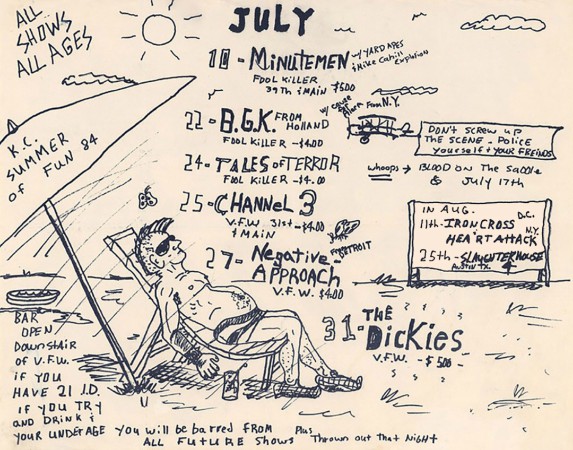 ALL
SHOWS
ALL AGES
JULY
10 - MINUTEMEN W/ YARD APES
& Mike Cahill Explosion
FOOL KILLER
39TH & MAIN $5.00
22 - B.G.K. FROM HOLLAND
W/ CAUSE FOR Alarm From N.Y.
FOOL KILLER - $4.00
24 - TALES OF TERROR
FOOL KILLER - $4.00
25 - CHANNEL 3
V.F.W. 31st - $4.00
& MAIN
27 - Negative -
APPROACH
DETROIT
V.F.W. $4.00
31 - THE
DICKIES
V.F.W. - $5.00 -
K.C.
SUMMER
of FUN 84
DON'T SCREW UP
THE SCENE - POLICE
YOURSELF + YOUR FREINDS
whoops → BLOOD ON The Saddle
July 17th
IN AUG.
D.C.
11th - IRON CROSS
N.Y.
HEART ATTACK
25th - SLAUGHTERHOUSE
4
AUSTIN TX.
BAR
OPEN
Downstair
of V.F.W.
if YOU
HAVE 21 I.D.
IF YOU TRY
AND DRINK &
YOUR UNDERAGE YOU will BE barred FROM Plus
ALL FUTURE Shows Thrown out That Night